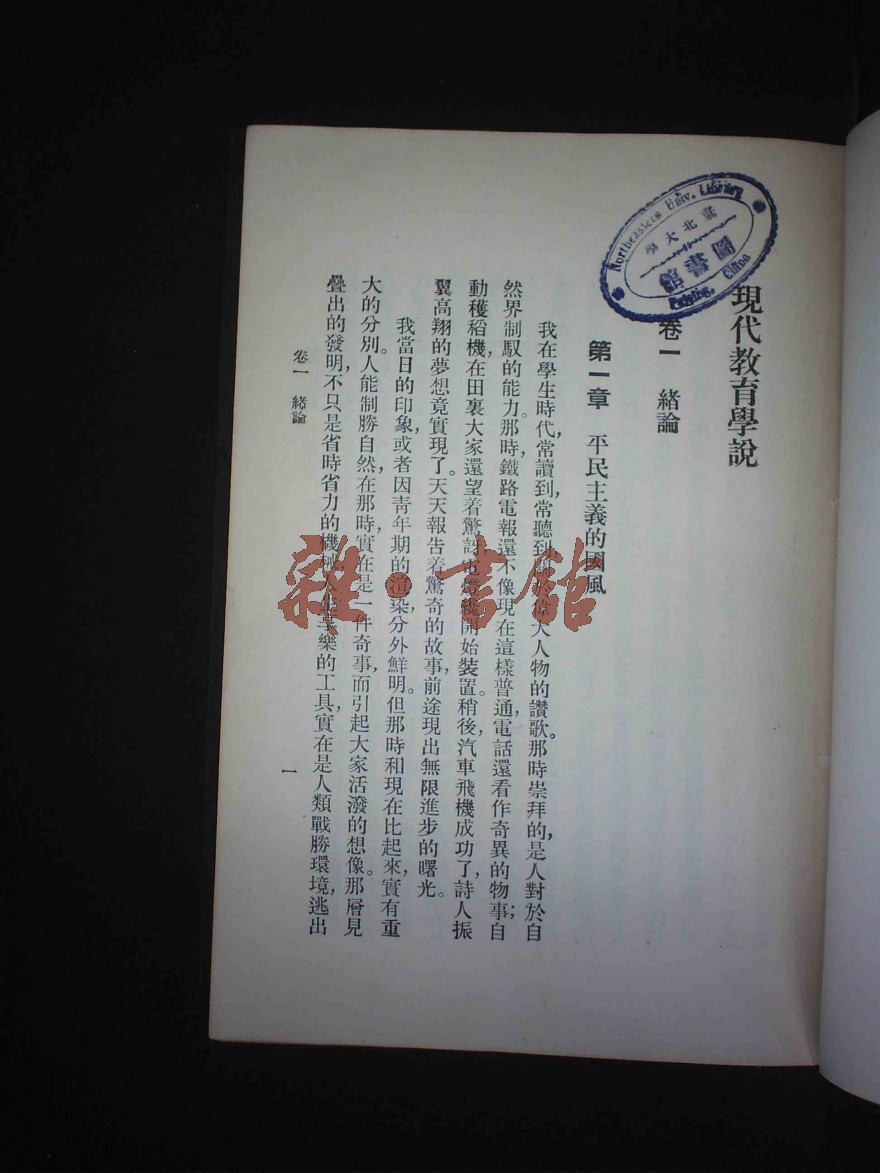 現代教育學說
卷一　緒論
第一章　平民主義的國風
我在學生時代，常讀到常聽到大人物的讚歌。那時崇拜的，是人對於自
然界制馭的能力。那時，鐵路電報還不像現在這樣普通，電話還看作奇異的物事；自
動穫稻機，在田裏大家還望着驚訝，開始裝置。稍後，汽車飛機成功了，詩人振
翼高翔的夢想竟實現了。天天報告着驚奇的故事，前途現出無限進步的曙光。
我當日的印象，或者因青年期的渲染，分外鮮明。但那時和現在比起來，實有重
大的分別。人能制勝自然，在那時，實在是一件奇事，而引起大家活潑的想像。那層見
疊出的發明，不只是省時省力的機械，樂的工具，實在是人類戰勝環境，逃出
卷一　緒論
一
Northeastern Univ. Library
東北大學
圖書館
China
雜·書館